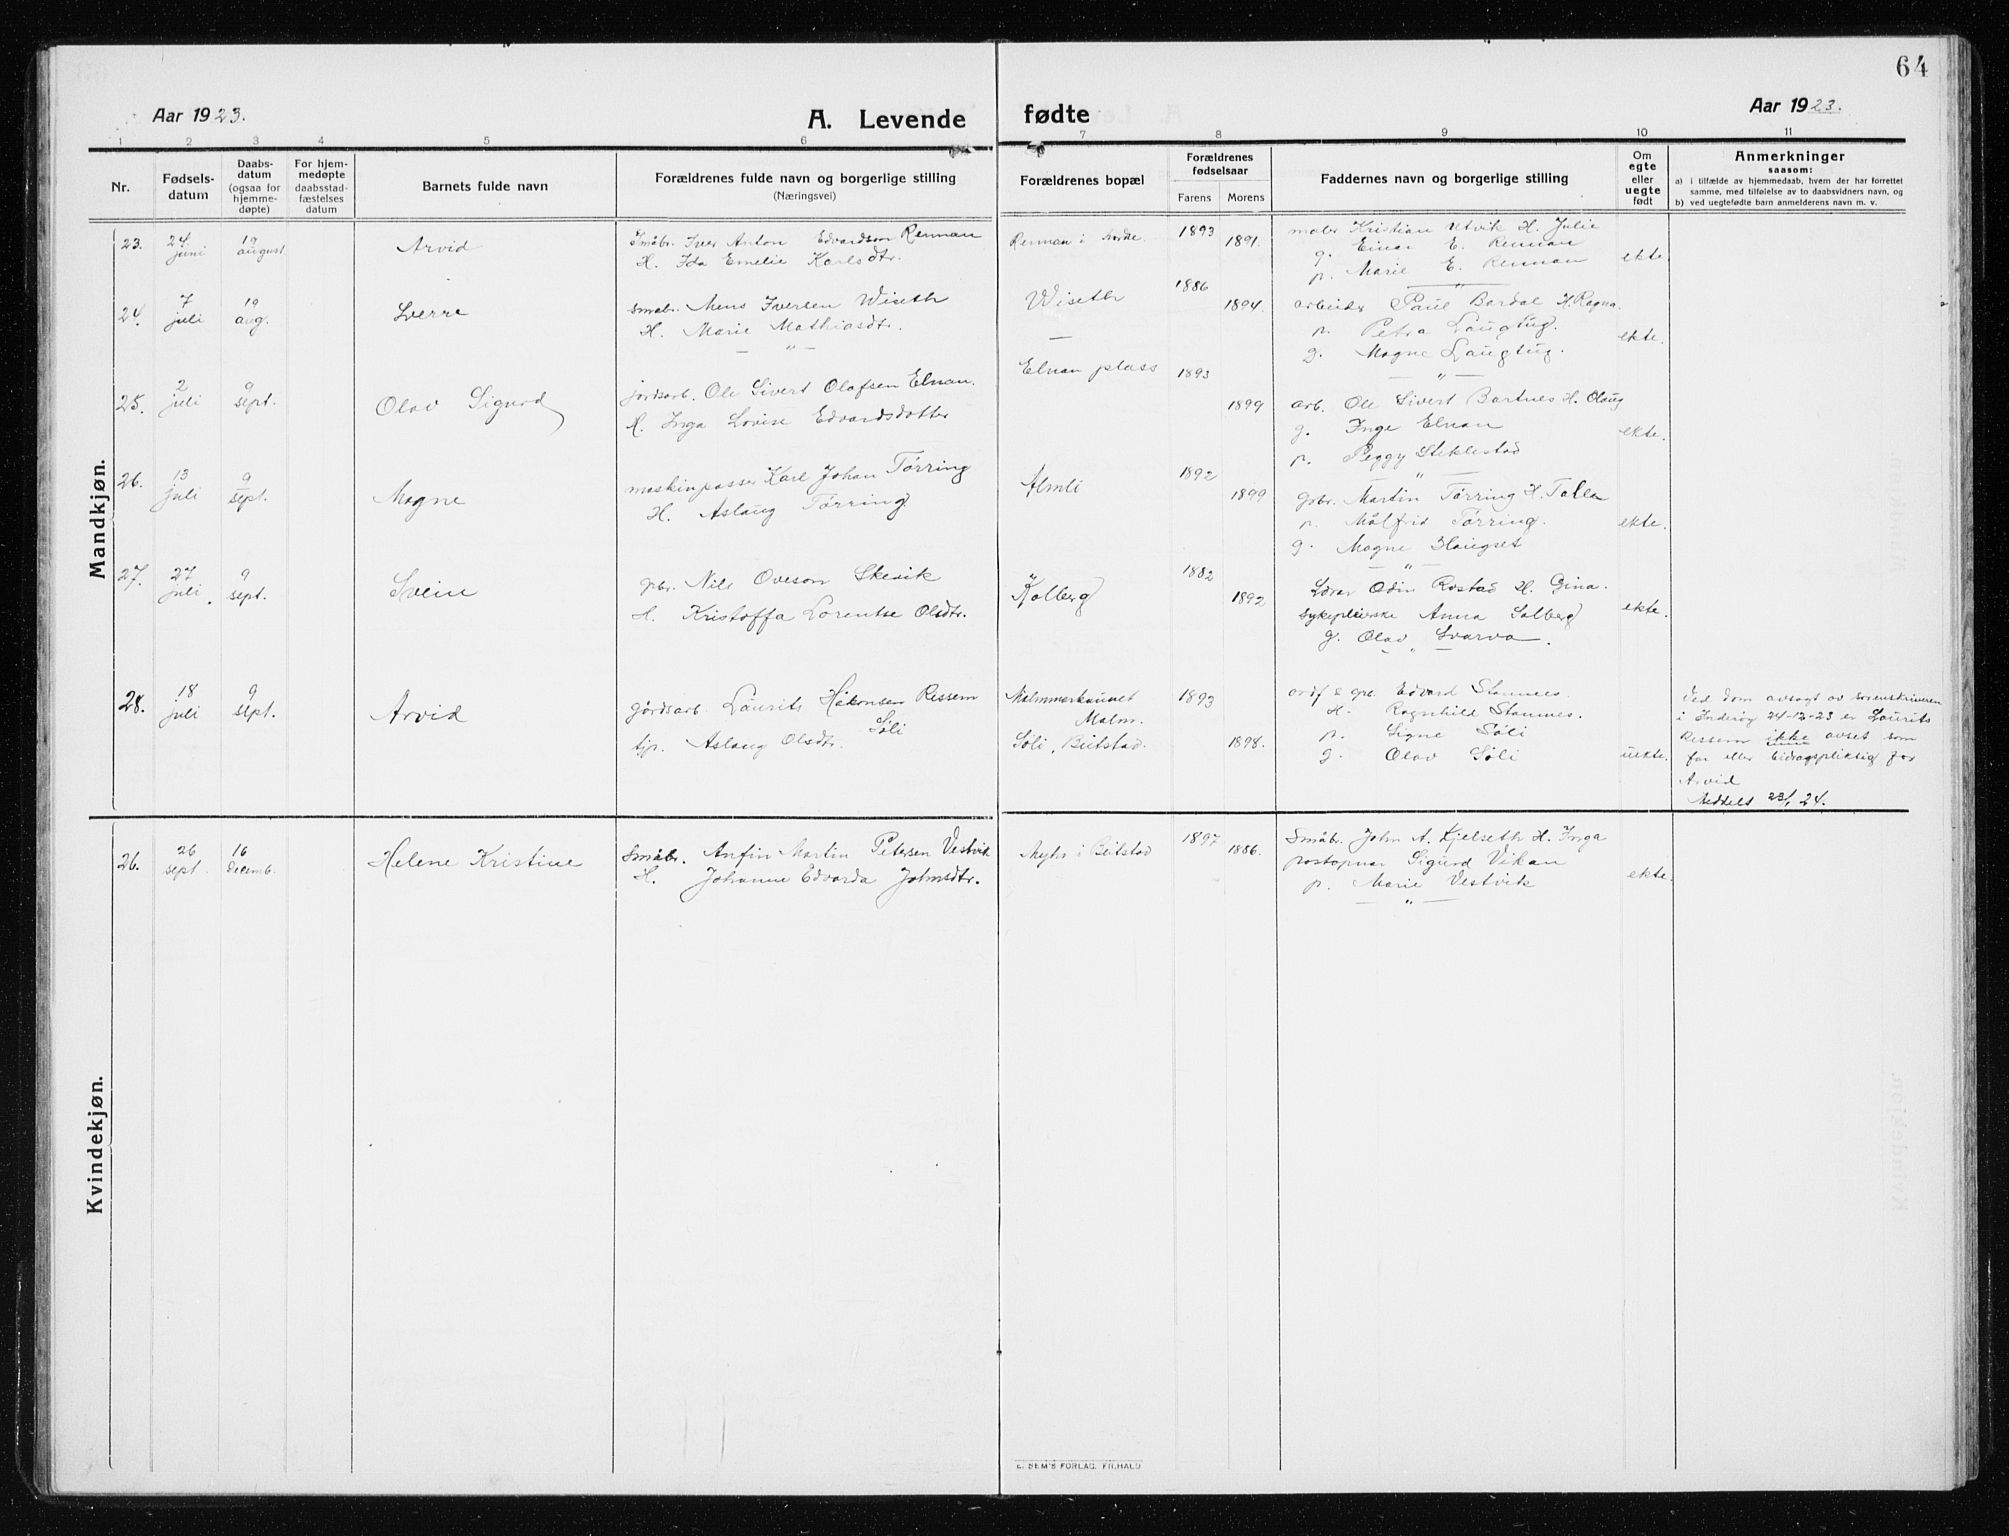 64
Aar 1923.
A. Levende fødte
Aar 1923.
1 2 3 4 5 6 7 8 9 10 11
Nr.
Fødsels-
datum
Daabs-
datum
(ogsaa for
hjemme-
døpte)
For hjem-
medøpte
daabsstad-
fæstelses
datum
Barnets fulde navn
Forældrenes fulde navn og borgerlige stilling
(Næringsvei)
Forældrenes bopæl
Forældrenes
fødselsaar
Farens Morens
Faddernes navn og borgerlige stilling
Om
egte
eller
uegte
født
Anmerkninger
saasom:
a) i tilfælde av hjemmedaab, hvem der har forrettet
samme, med tilføielse av to daabsvidners navn, og
b) ved uegtefødte barn anmelderens navn m. v.
Mandkjøn.
23. 24 juni 19 august Arvid
Småbr. Iver Anton Edvardson Rennan
H. Ida Emelie Karlsdtr.
Rennan i 1893 1891.
Kristian Utvik H. Julie
g. Einar E. Rennan
p. Marie E. Rennan
ekte
24. 7 juli 19 aug. Sverre
småbr. Mens Iversen Wiseth
H. Marie Mathiasdtr.
Wiseth 1886 1894.
arbeider Paul Bardal H. Ragna.
p. Petra Laugtug.
g. Magne Laugtug.
ekte.
25. 2 juli 9 sept. Olav Sigurd
jordarb. Ole Sivert Olafsen Elnan.
H. Inga Lovise Edvardsdotter
Elnan plass 1893 1899
arb. Ole Sivert Bartnes H. Olaug
g. Inge Elnan
p. Peggy Stiklestad
ekte.
26. 13 juli 9 sept. Magne
maskinpasser Karl Johan Tørring
H. Aslaug Tørring
Almli 1892 1899
gbr. Martin Tørring H.
p. Målfrid Tørring.
g. Magne Haugset
ekte.
27. 27 juli. 9 sept. Svein
gbr. Nils Oveson Skevik
H. Kristoffa Lorentse Olsdtr.
Kolberg 1882 1892
Lærer Odin Rostad H. Gina.
sykepleierske Anna Solberg
g. Olav Svarva.
ekte.
28. 18 juli 9 sept. Arvid
gårdsarb. Laurits Håkonsen Ressem
tjp. Aslaug Olsdtr. Søli
Malm.
Søli, Beitstad. 1893 1898.
ordf & gbr. Edvard Stamnes.
H. Ragnhild Stamnes.
p. Signe Søli
g. Olav Søli
uekte.
Ved dom avsagt av sorenskriveren
i Inderøy 24-12-23 er Laurits
Ressem ikke anset som
far eller bidragspliktig for
Arvid
Meddelt 23/1 24.
Kvindekjøn.
26. 26 sept. 16 Decemb. Helene Kristine
Småbr. Anfin Martin Petersen Vestvik
H. Johanne Edvarda Johnsdtr.
Myhr i Beitstad 1897 1886.
Småbr. John A. Kjelseth H. Inga
postopnar Sigurd Vikan
p. Marie Vestvik
ekte.
E. SEM'S FORLAG. FR.HALD